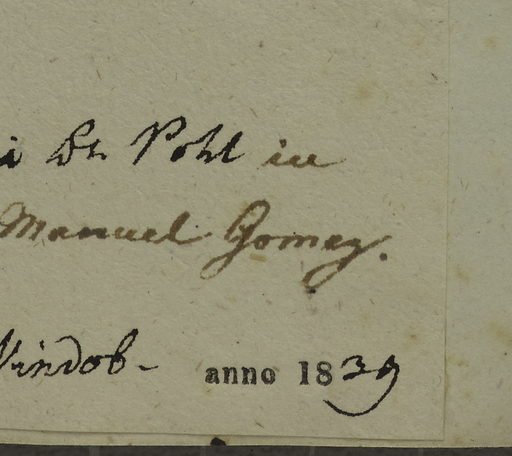 i Dr. Pohl in
Manuel Gomez.
Vindob-
anno 1839